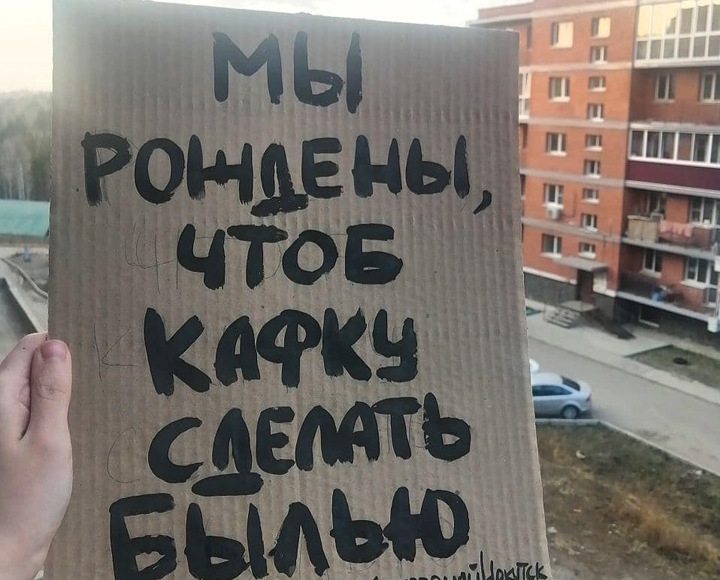 МЫ
РОЖДЕНЫ,
ЧТОБ
КАФКУ
СДЕЛАТЬ
БЫЛЬЮ